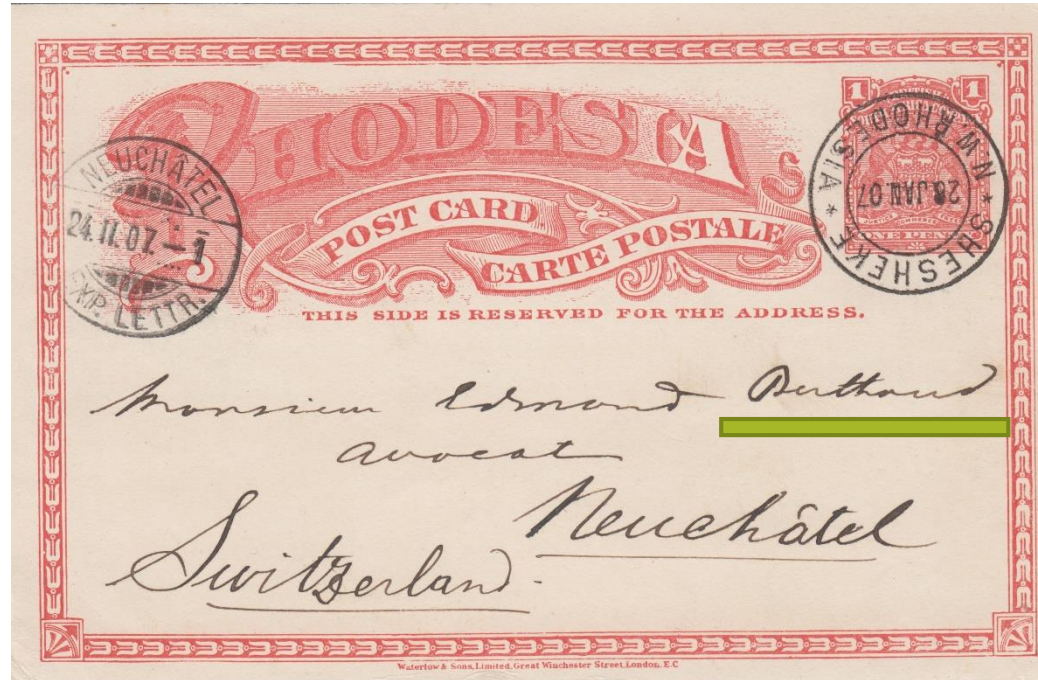 RHODESIA
POST CARD
CARTE POSTALE
THIS SIDE IS RESERVED FOR THE ADDRESS.
1 1
ONE PENNY
N.W. RHODESIA * SHESHEKE *
28 JAN. 07
NEUCHÂTEL
24.II.07.–1
EXP. LETTR.
Monsieur Edmond Berthoud
avocat
Neuchâtel
Switzerland.
Waterlow & Sons, Limited, Great Winchester Street, London, E.C